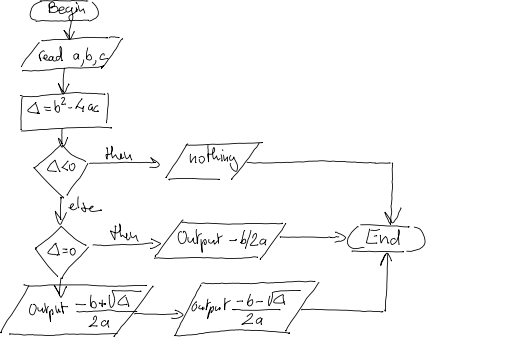 Begin
read a,b,c
Δ=b²-4ac
Δ<0
then
nothing
else
Δ=0
then
Output -b/2a
End
output (-b+√Δ)/2a
output (-b-√Δ)/2a